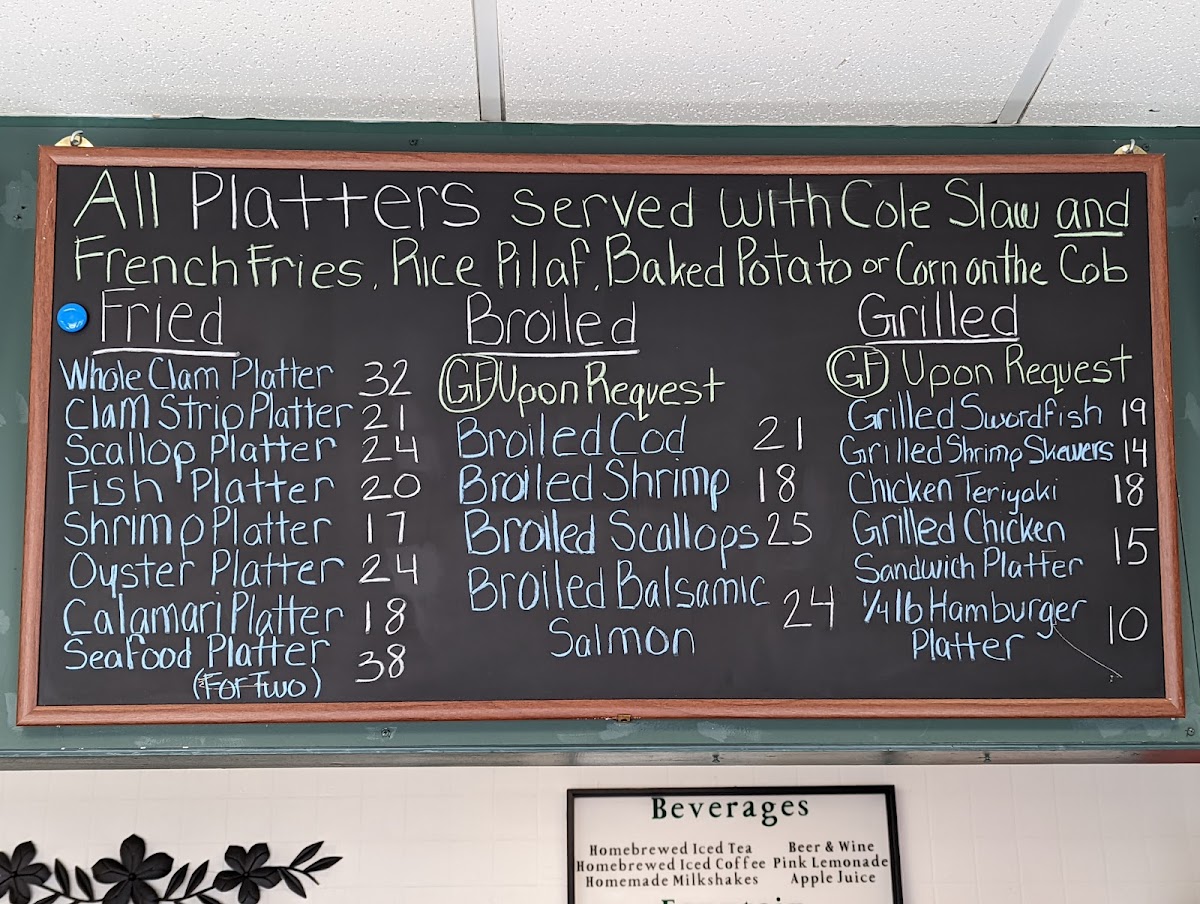 All Platters served with Cole Slaw and
French Fries, Rice Pilaf, Baked Potato or Corn on the Cob
Fried
Whole Clam Platter 32
Clam Strip Platter 21
Scallop Platter 24
Fish Platter 20
Shrimp Platter 17
Oyster Platter 24
Calamari Platter 18
Seafood Platter 38
(For Two)
Broiled
GF Upon Request
Broiled Cod 21
Broiled Shrimp 18
Broiled Scallops 25
Broiled Balsamic 24
Salmon
Grilled
GF Upon Request
Grilled Swordfish 19
Grilled Shrimp Skewers 14
Chicken Teriyaki 18
Grilled Chicken 15
Sandwich Platter
1/4 lb Hamburger 10
Platter
Beverages
Homebrewed Iced Tea
Homebrewed Iced Coffee
Homemade Milkshakes
Beer & Wine
Pink Lemonade
Apple Juice